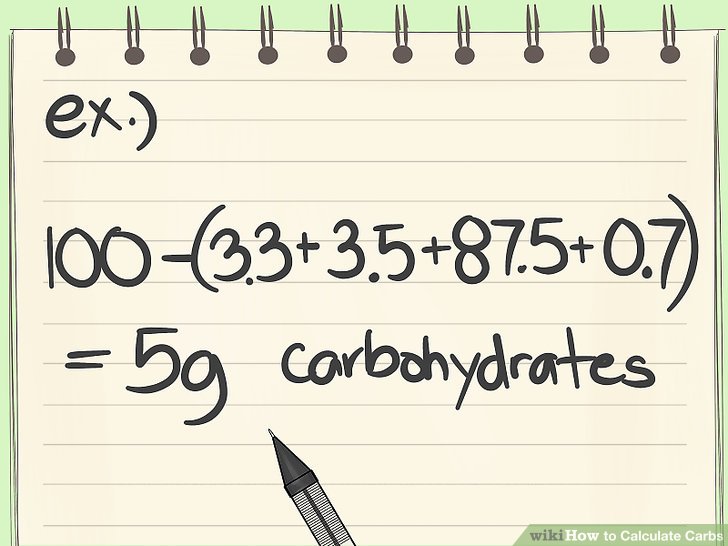 ex.)
100-(3.3+3.5+87.5+0.7)
= 5g carbohydrates
wikiHow to Calculate Carbs